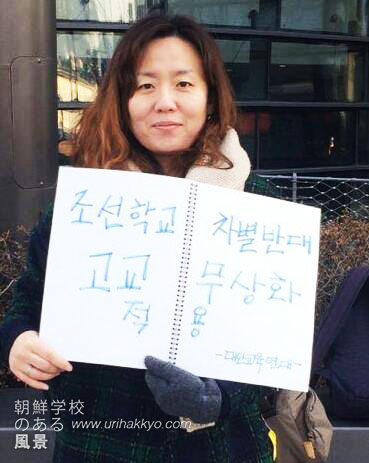 조선학교 차별반대
고교 무상화
적용
朝鮮学校
のある www.urihakkyo.com
風景